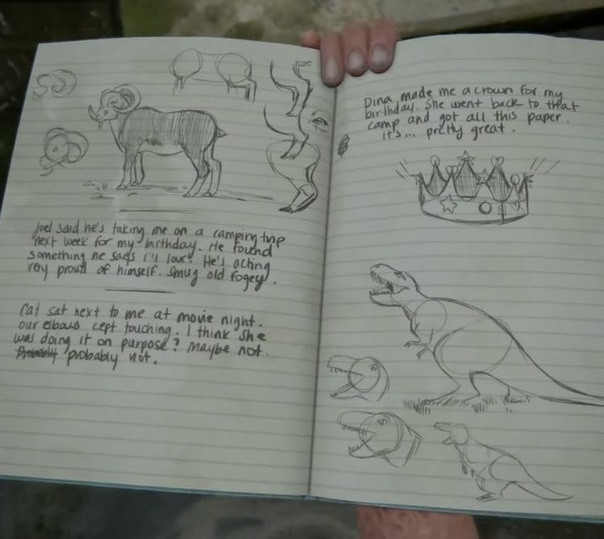 Joel said he's taking me on a camping trip
next week for my birthday. He found
something he says I'll love. He's acting
very proud of himself. Smug old fogey.
Cat sat next to me at movie night.
our elbows kept touching. I think she
was doing it on purpose? Maybe not.
Probably probably not.
Dina made me a crown for my
birthday. She went back to that
camp and got all this paper.
It's... pretty great.